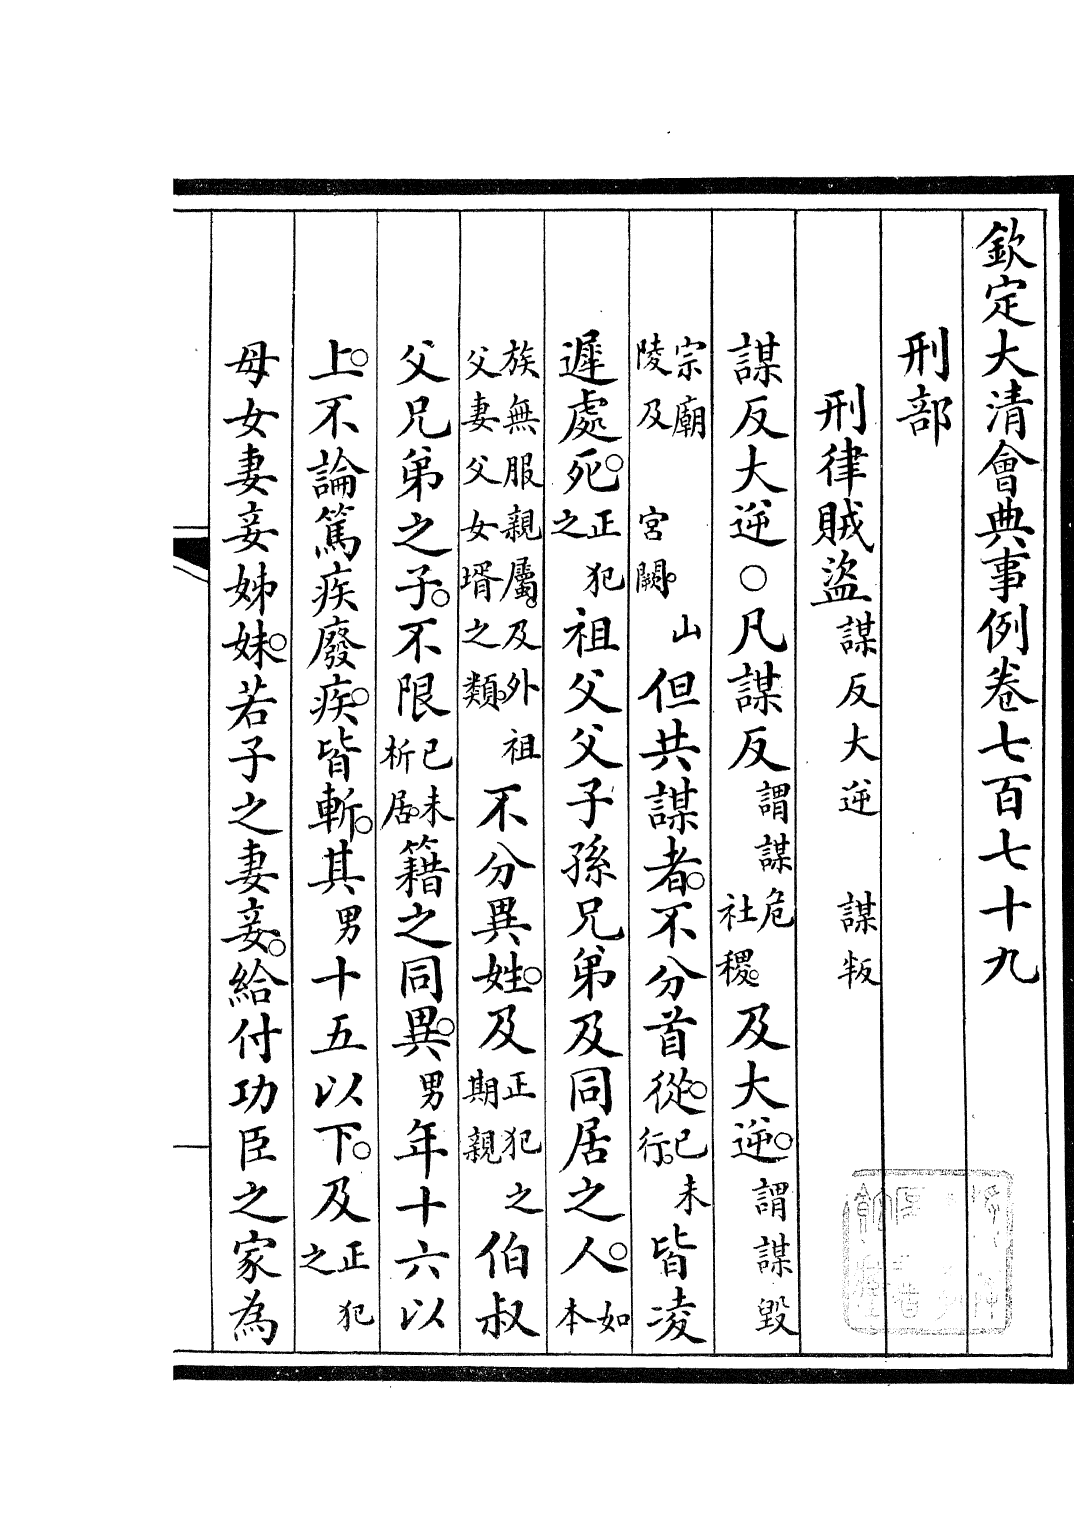 欽定大清會典事例卷七百七十九
刑部
刑律賊盜謀反大逆　謀叛
謀反大逆○凡謀反謂謀危社稷。及大逆。謂謀毀
宗廟山陵及宮闕。但共謀者。不分首從。已未行。皆凌
遲處死。正犯之祖父父子孫兄弟及同居之人。如本
族無服親屬。及外祖父妻父女壻之類。不分異姓。及正犯之期親伯叔
父兄弟之子。不限已未析居。籍之同異。男年十六以
上。不論篤疾廢疾。皆斬。其男十五以下。及正犯之
母女妻妾姊妹。若子之妻妾。給付功臣之家為